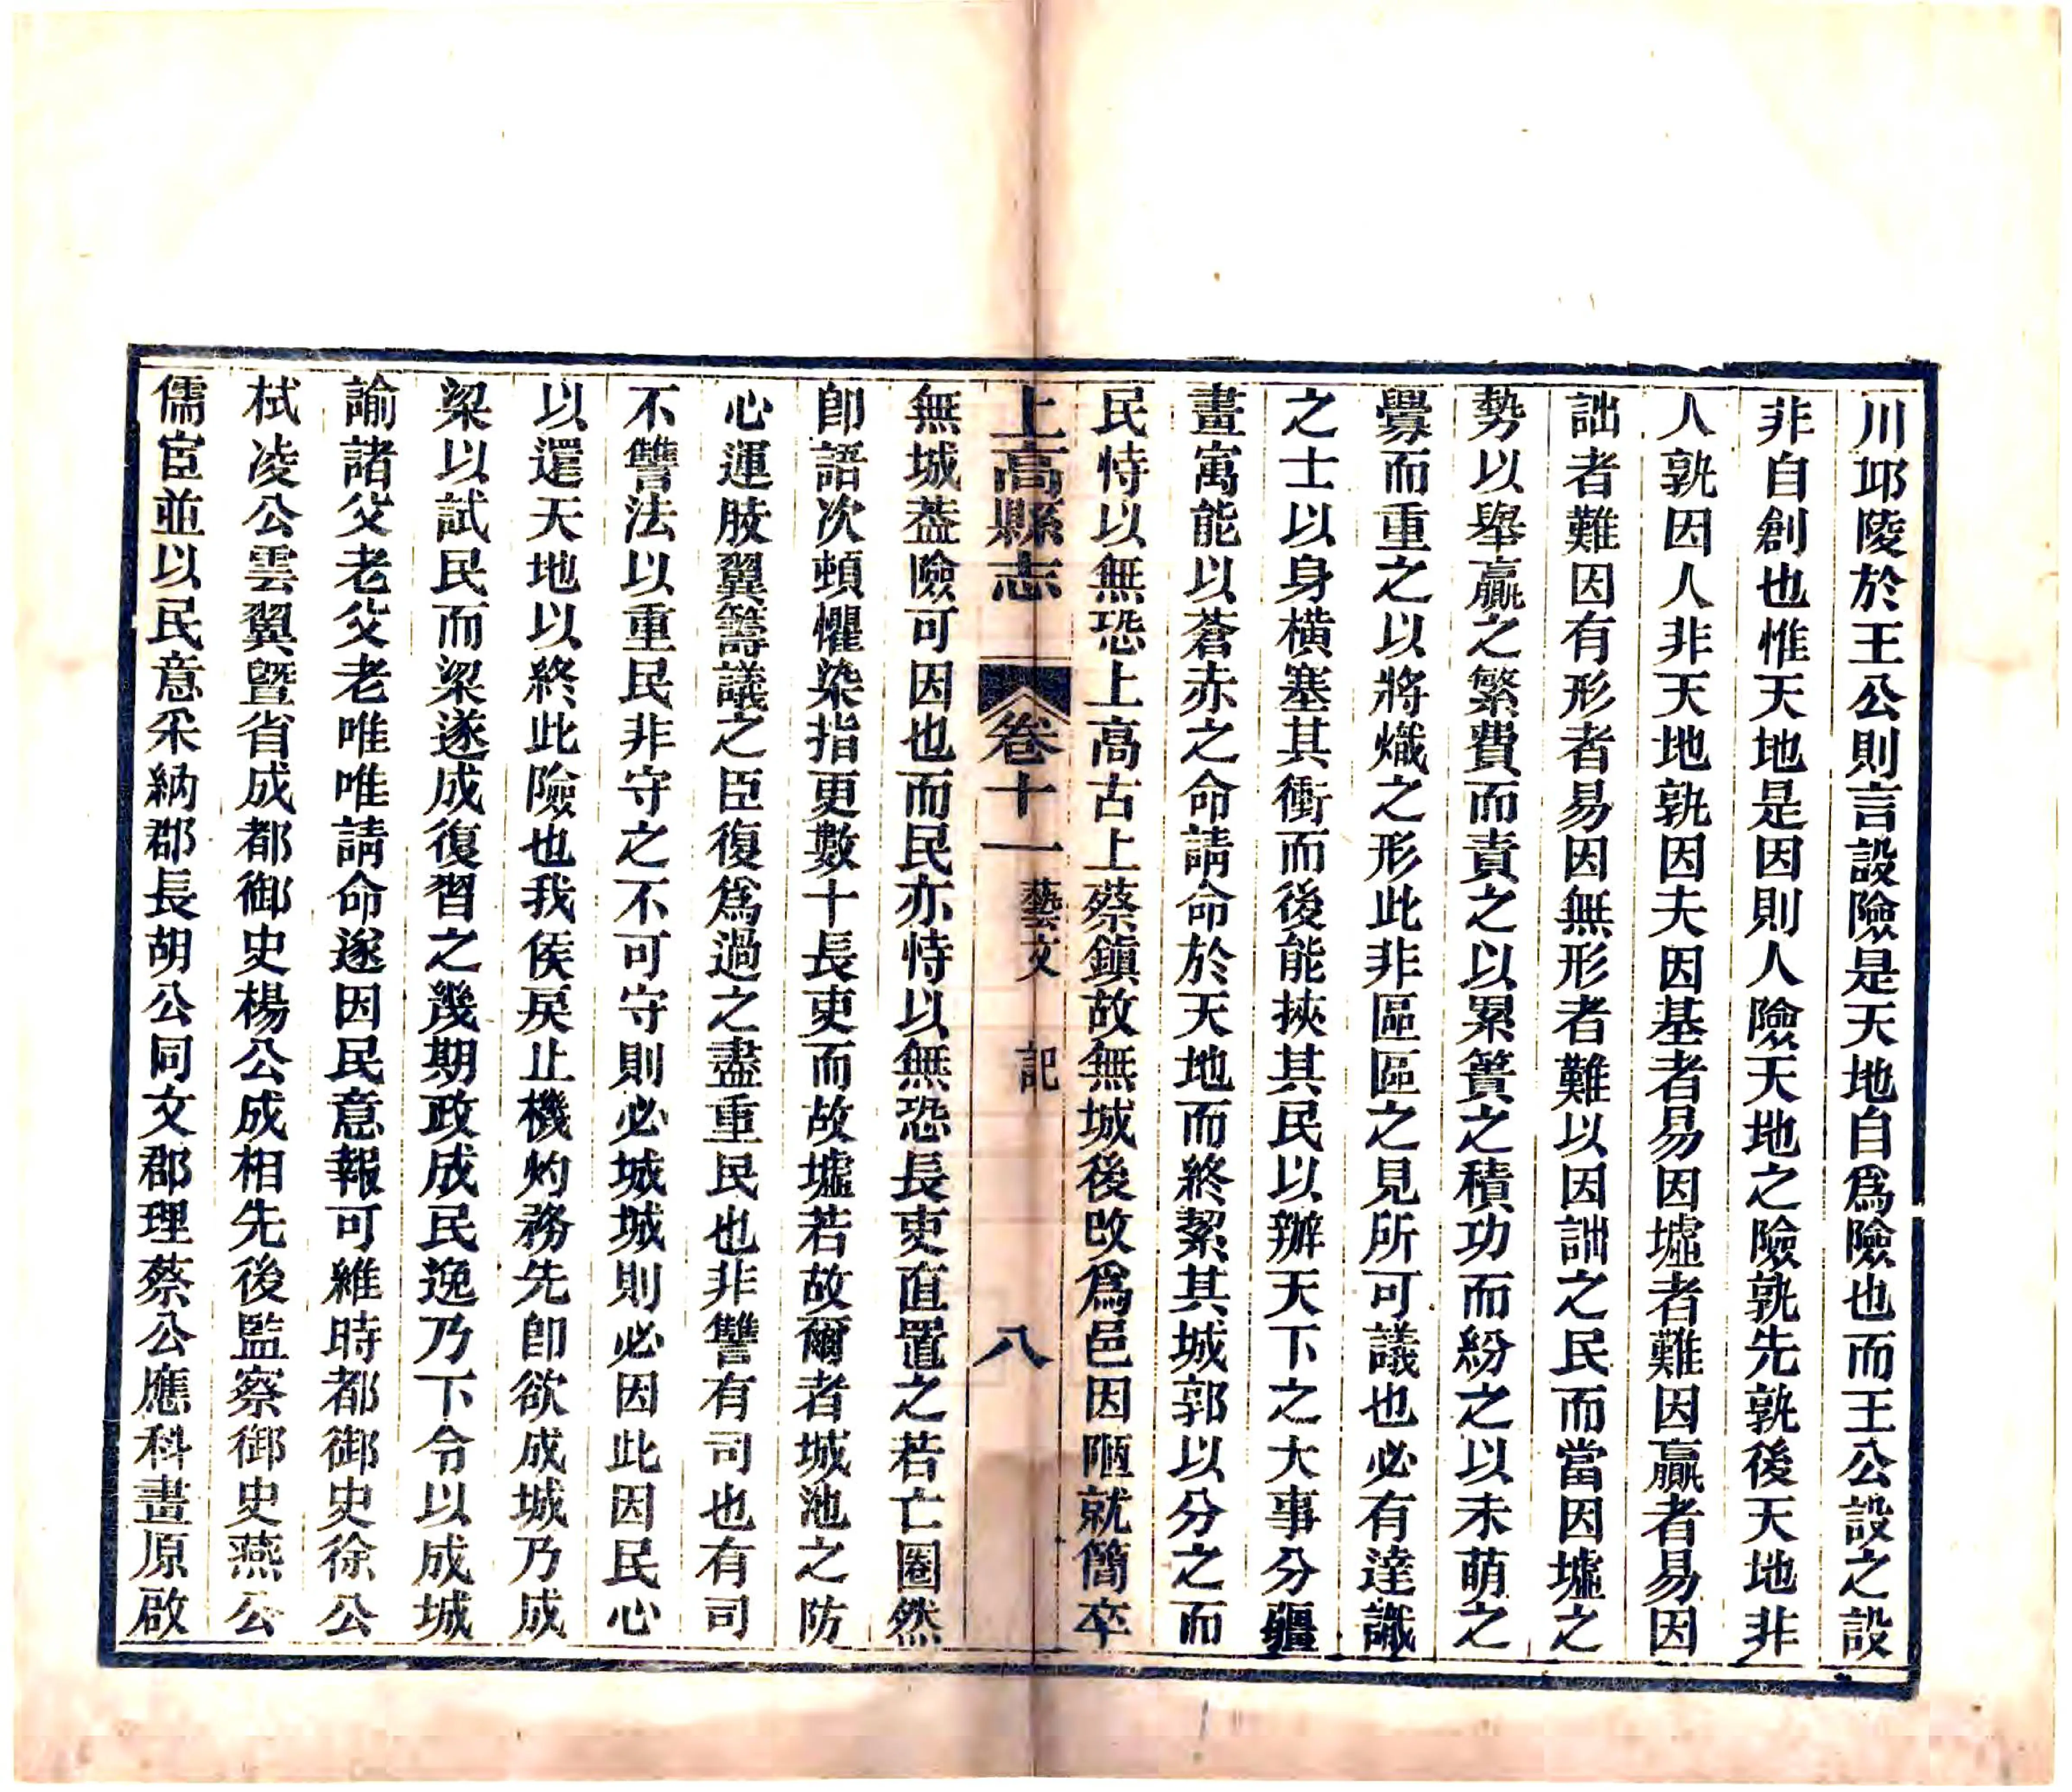 川邱陵於王公則言設險是天地自爲險也而王公設之設
非自創也惟天地是因則人險天地之險孰先孰後天地非
人孰因人非天地孰因夫因基者易因墟者難因贏者易因
詘者難因有形者易因無形者難以因詘之民而當因墟之
勢以舉贏之繁費而責之以累簣之積功而紛之以未萌之
釁而重之以將熾之形此非區區之見所可議也必有達識
之士以身橫塞其衝而後能挾其民以辦天下之大事分疆
畫寓能以蒼赤之命請命於天地而終絜其城郭以分之而
民恃以無恐上高古上蔡鎮故無城後改爲邑因陋就簡卒
上高縣志 卷十一 藝文 記 八
無城葢險可因也而民亦恃以無恐長吏直置之若亡圈然
卽語次頓懼染指更數十長吏而故墟若故爾者城池之防
心運肢翼籌議之臣復爲過之盡重民也非讐有司也有司
不讐法以重民非守之不可守則必城城則必因此因民心
以還天地以終此險也我侯戾止機灼務先卽欲成城乃成
梁以試民而梁遂成復習之幾期政成民逸乃下令以成城
諭諸父老父老唯唯請命遂因民意報可維時都御史徐公
栻凌公雲翼暨省成都御史楊公成相先後監察御史燕公
儒宦並以民意采納郡長胡公同文郡理蔡公應科畫原啟